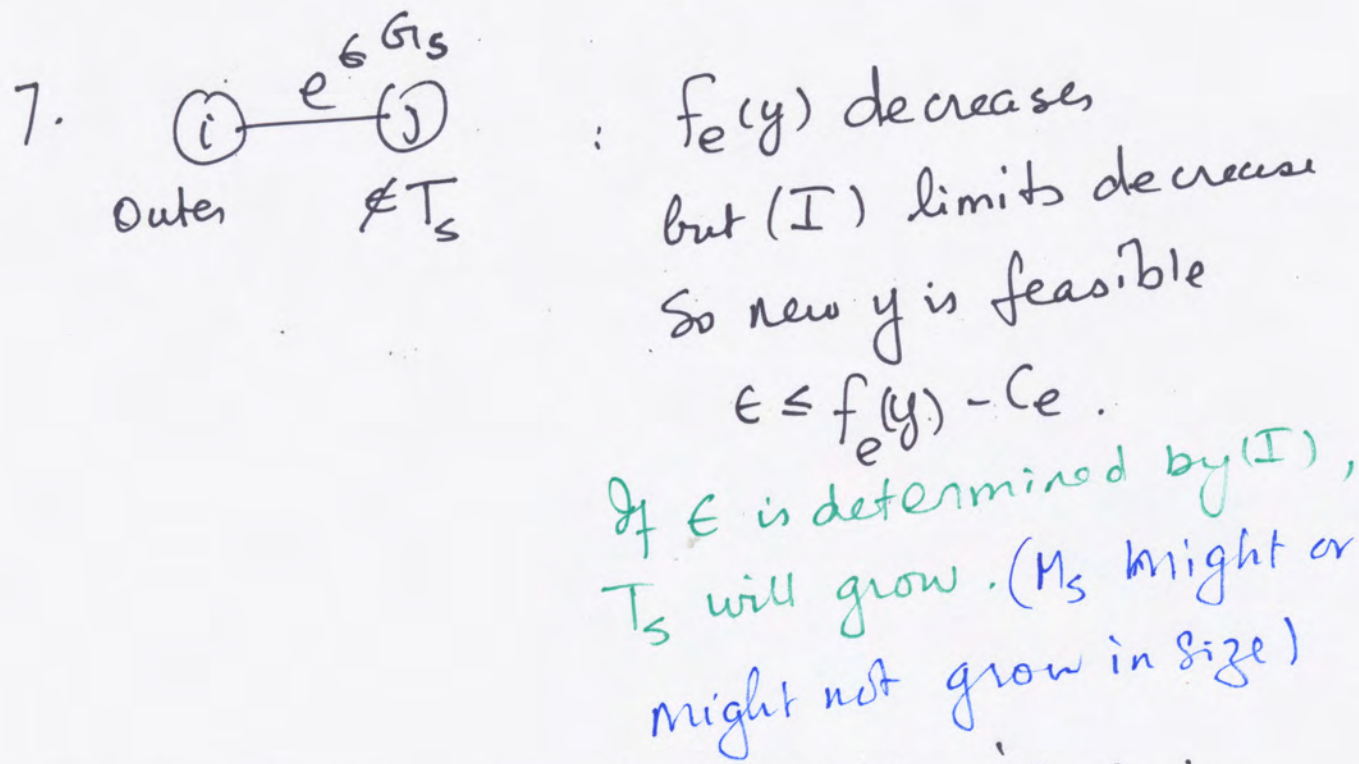 7. i e ∈ G_s j : f_e(y) decreases
Outer ∉ T_s but (I) limits decrease
So new y is feasible
ϵ ≤ f_e(y) - C_e .
If ϵ is determined by (I),
T_s will grow. (M_s might or
might not grow in size)